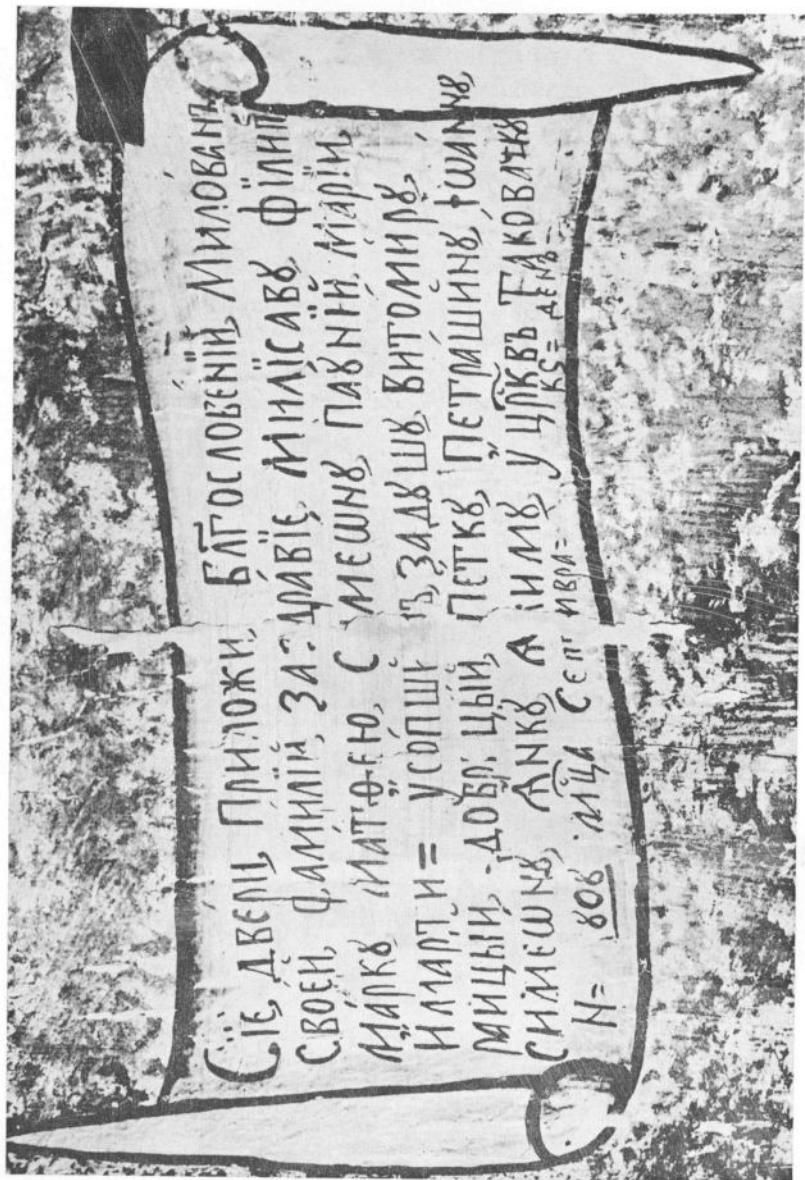 Сїѐ, двери, Приложи, бл҃гословенїй, Милованъ
своей, фамилїи, за здравїе, Милїсавꙋ, филип
Маркꙋ Матѳею, С мешнꙋ, Паꙋнїи, марїи,
и март и= усопши ъ, задꙋшꙋ, витомирꙋ,
мицый, добр цый, петкꙋ, петрашинꙋ, їѡаннꙋ,
симеѡнꙋ, анкꙋ, а имꙋ, у цр҃квъ таковачкꙋ
N= мⷭ҇ца Септ иврa= кѕ= день=